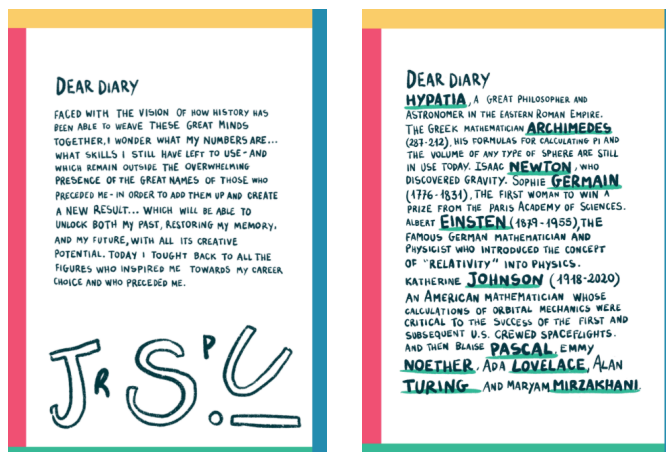 DEAR DIARY
FACED WITH THE VISION OF HOW HISTORY HAS
BEEN ABLE TO WEAVE THESE GREAT MINDS
TOGETHER, I WONDER WHAT MY NUMBERS ARE...
WHAT SKILLS I STILL HAVE LEFT TO USE - AND
WHICH REMAIN OUTSIDE THE OVERWHELMING
PRESENCE OF THE GREAT NAMES OF THOSE WHO
PRECEDED ME - IN ORDER TO ADD THEM UP AND CREATE
A NEW RESULT... WHICH WILL BE ABLE TO
UNLOCK BOTH MY PAST, RESTORING MY MEMORY,
AND MY FUTURE, WITH ALL ITS CREATIVE
POTENTIAL. TODAY I TOUGHT BACK TO ALL THE
FIGURES WHO INSPIRED ME TOWARDS MY CAREER
CHOICE AND WHO PRECEDED ME.
J R S P U . _
DEAR DIARY
HYPATIA, A GREAT PHILOSOPHER AND
ASTRONOMER IN THE EASTERN ROMAN EMPIRE.
THE GREEK MATHEMATICIAN ARCHIMEDES
(287-212), HIS FORMULAS FOR CALCULATING PI AND
THE VOLUME OF ANY TYPE OF SPHERE ARE STILL
IN USE TODAY. ISAAC NEWTON, WHO
DISCOVERED GRAVITY. SOPHIE GERMAIN
(1776-1831), THE FIRST WOMAN TO WIN A
PRIZE FROM THE PARIS ACADEMY OF SCIENCES.
ALBERT EINSTEN (1879-1955), THE
FAMOUS GERMAN MATHEMATICIAN AND
PHYSICIST WHO INTRODUCED THE CONCEPT
OF "RELATIVITY" INTO PHYSICS.
KATHERINE JOHNSON (1918-2020)
AN AMERICAN MATHEMATICIAN WHOSE
CALCULATIONS OF ORBITAL MECHANICS WERE
CRITICAL TO THE SUCCESS OF THE FIRST AND
SUBSEQUENT U.S. CREWED SPACEFLIGHTS.
AND THEN BLAISE PASCAL, EMMY
NOETHER, ADA LOVELACE, ALAN
TURING AND MARYAM MIRZAKHANI.